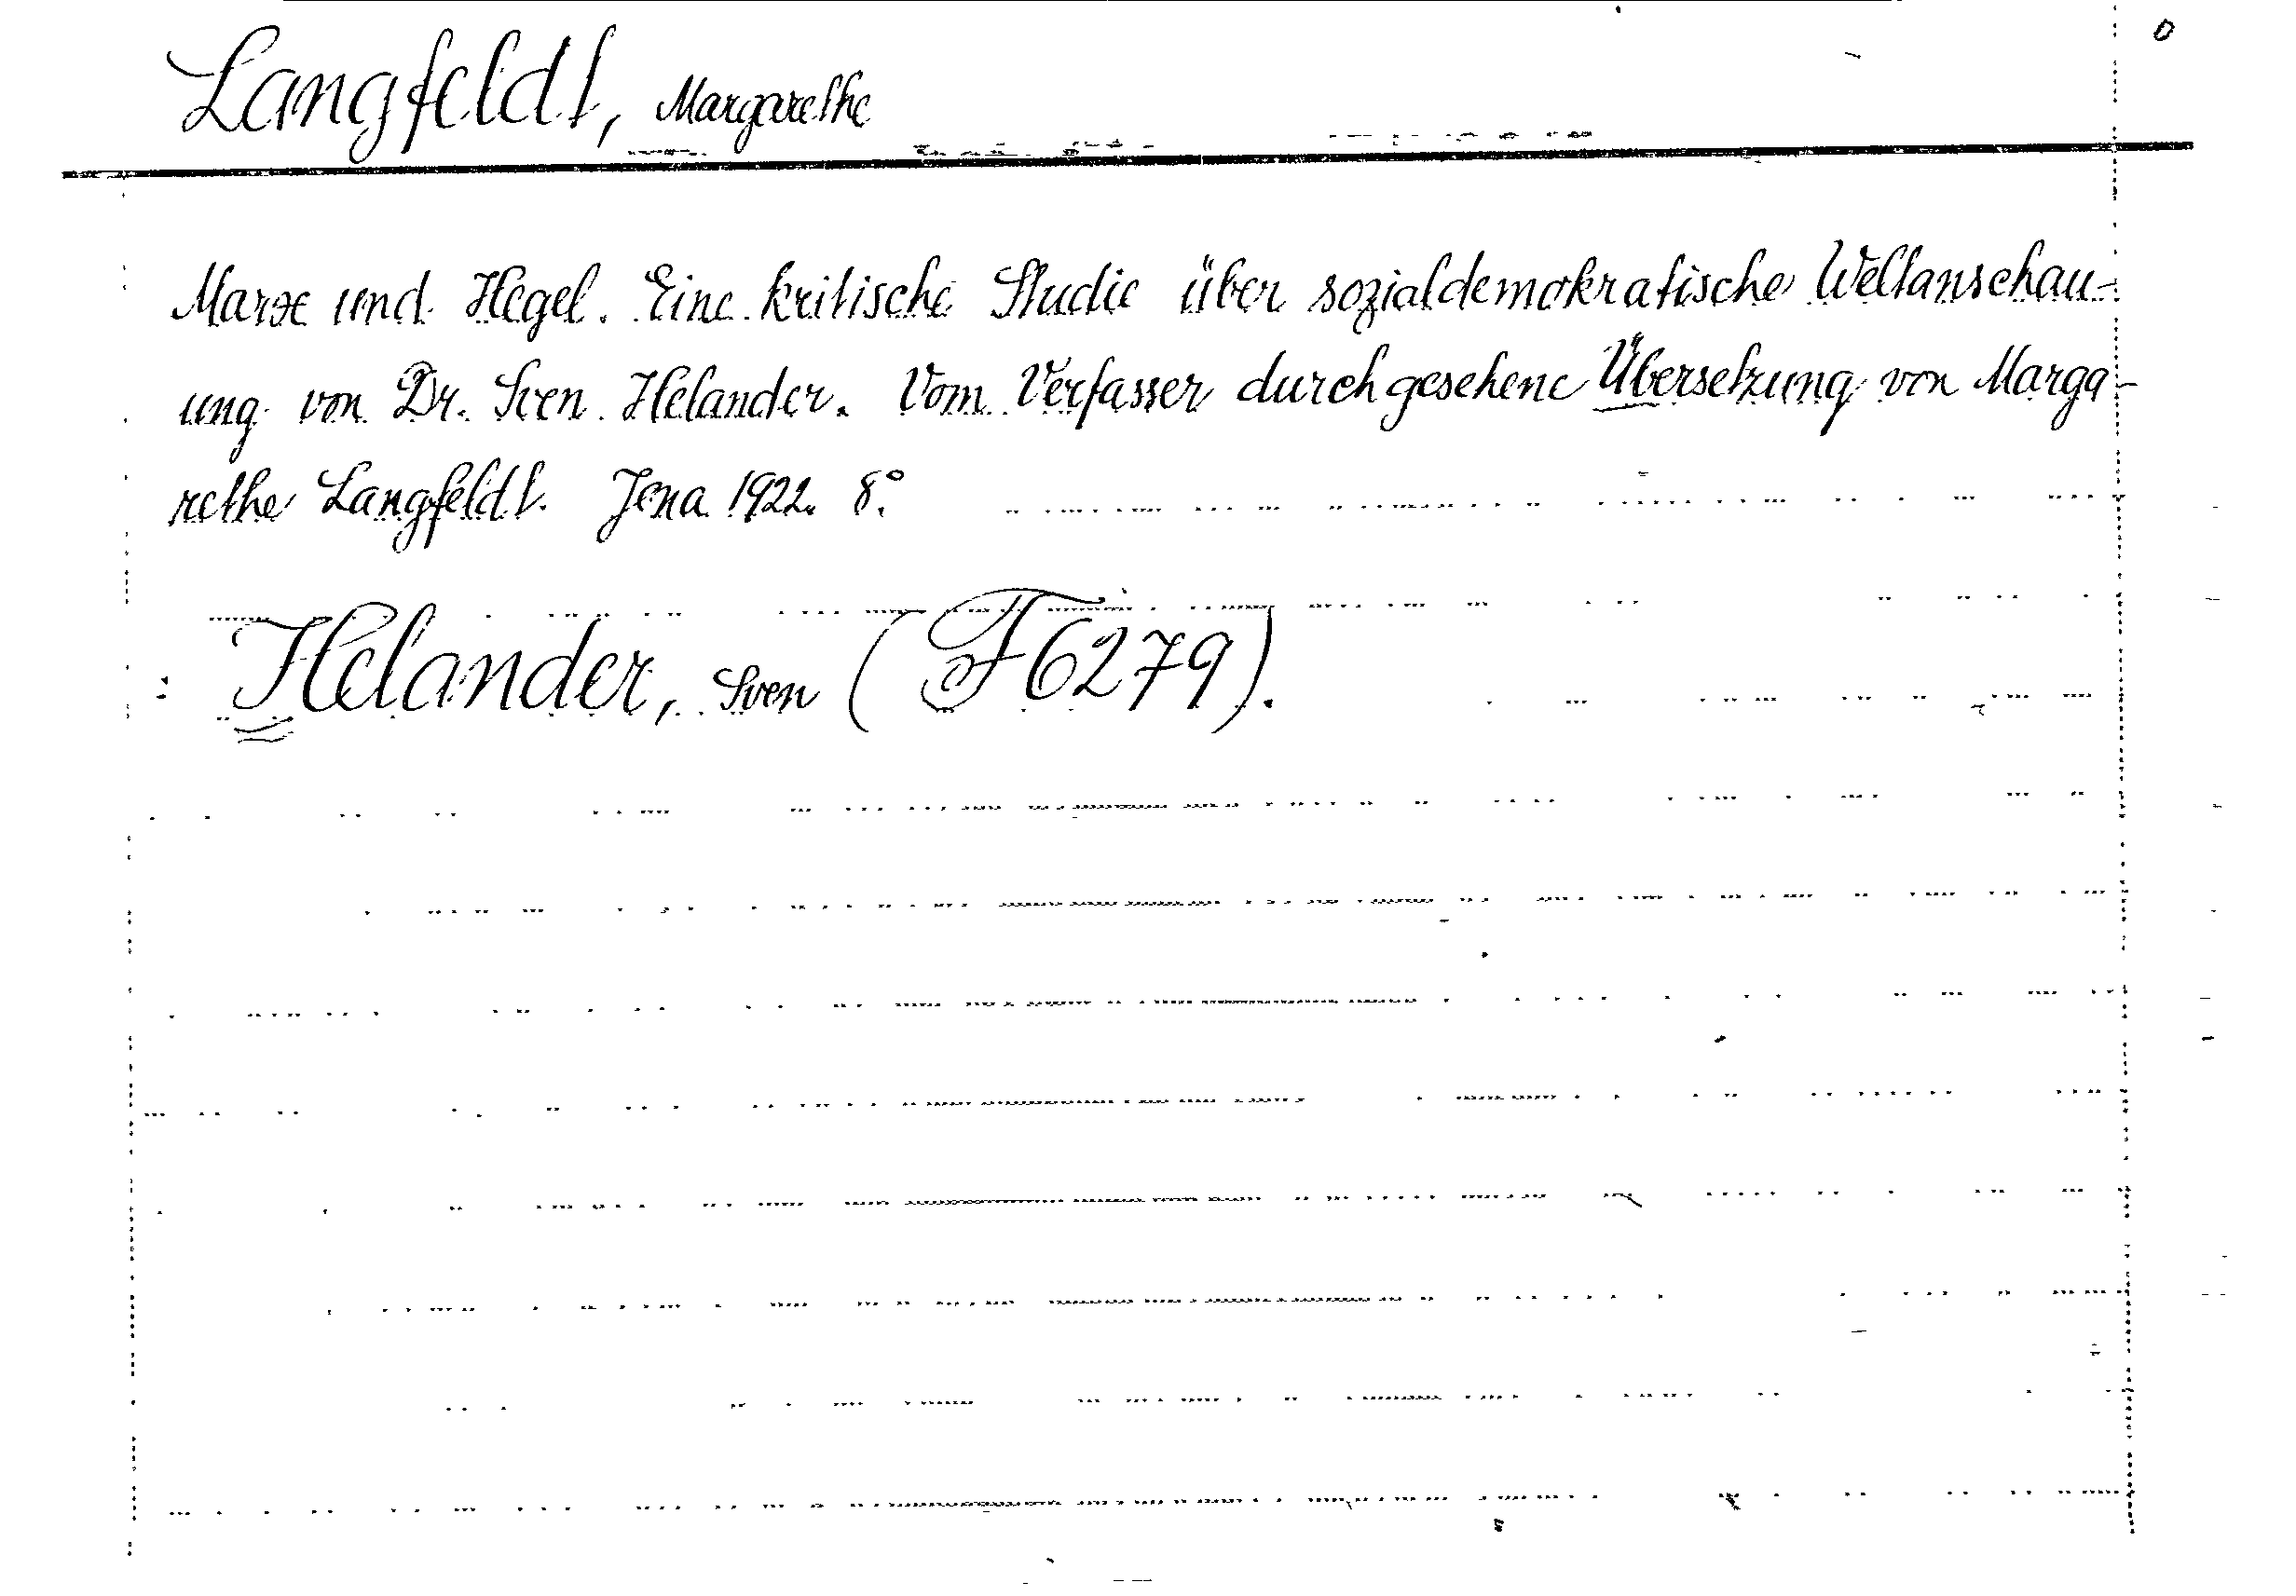 Langfeldt, Margarethe
Marx und Hegel. Eine kritische Studie über sozialdemokratische Weltanschau-
ung von Dr. Sven Helander. Vom Verfasser durchgesehene Übersetzung von Marga-
rethe Langfeldt. Jena 1922. 8°.
: Helander, Sven (F6279).